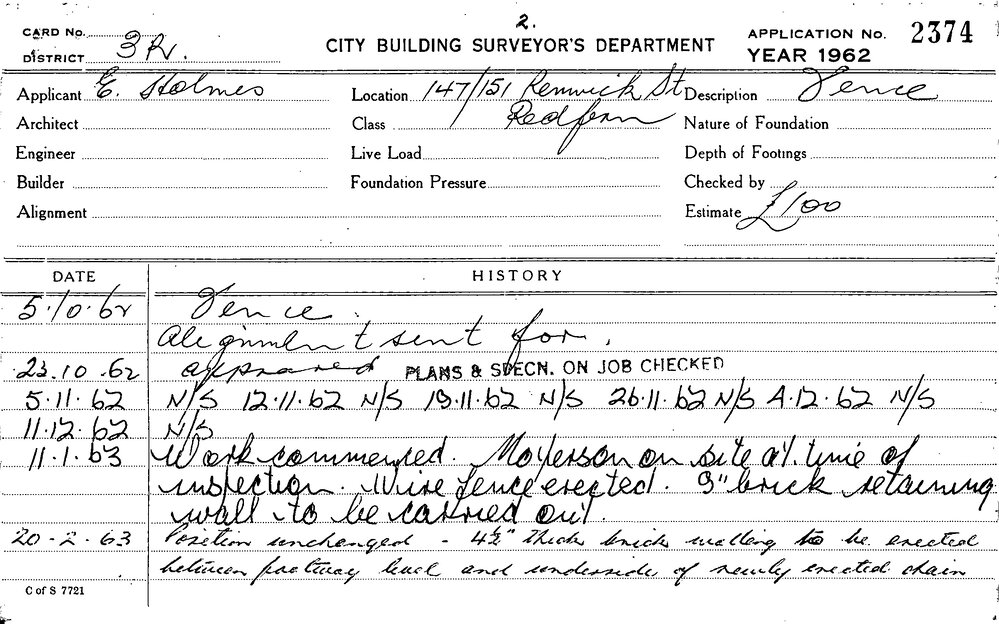 2.
CARD No.
DISTRICT 3R.
CITY BUILDING SURVEYOR'S DEPARTMENT
APPLICATION No. 2374
YEAR 1962
Applicant E. Holmes
Location 147/151 Renwick St
Redfern
Description Fence
Architect
Class
Nature of Foundation
Engineer
Live Load
Depth of Footings
Builder
Foundation Pressure
Checked by
Alignment
Estimate £100
DATE HISTORY
5.10.62 Fence.
Alignment sent for.
23.10.62 approved PLANS & SPECN. ON JOB CHECKED
5.11.62 N/S 12.11.62 N/S 19.11.62 N/S 26.11.62 N/S 4.12.62 N/S
11.12.62 N/S
11.1.63 Work commenced. No person on site at time of
inspection. Wire fence erected. 9" brick retaining
wall to be carried out.
20-2-63 Position unchanged - 4½" thick brick walling to be erected
between footway level and underside of newly erected chain
C of S 7721